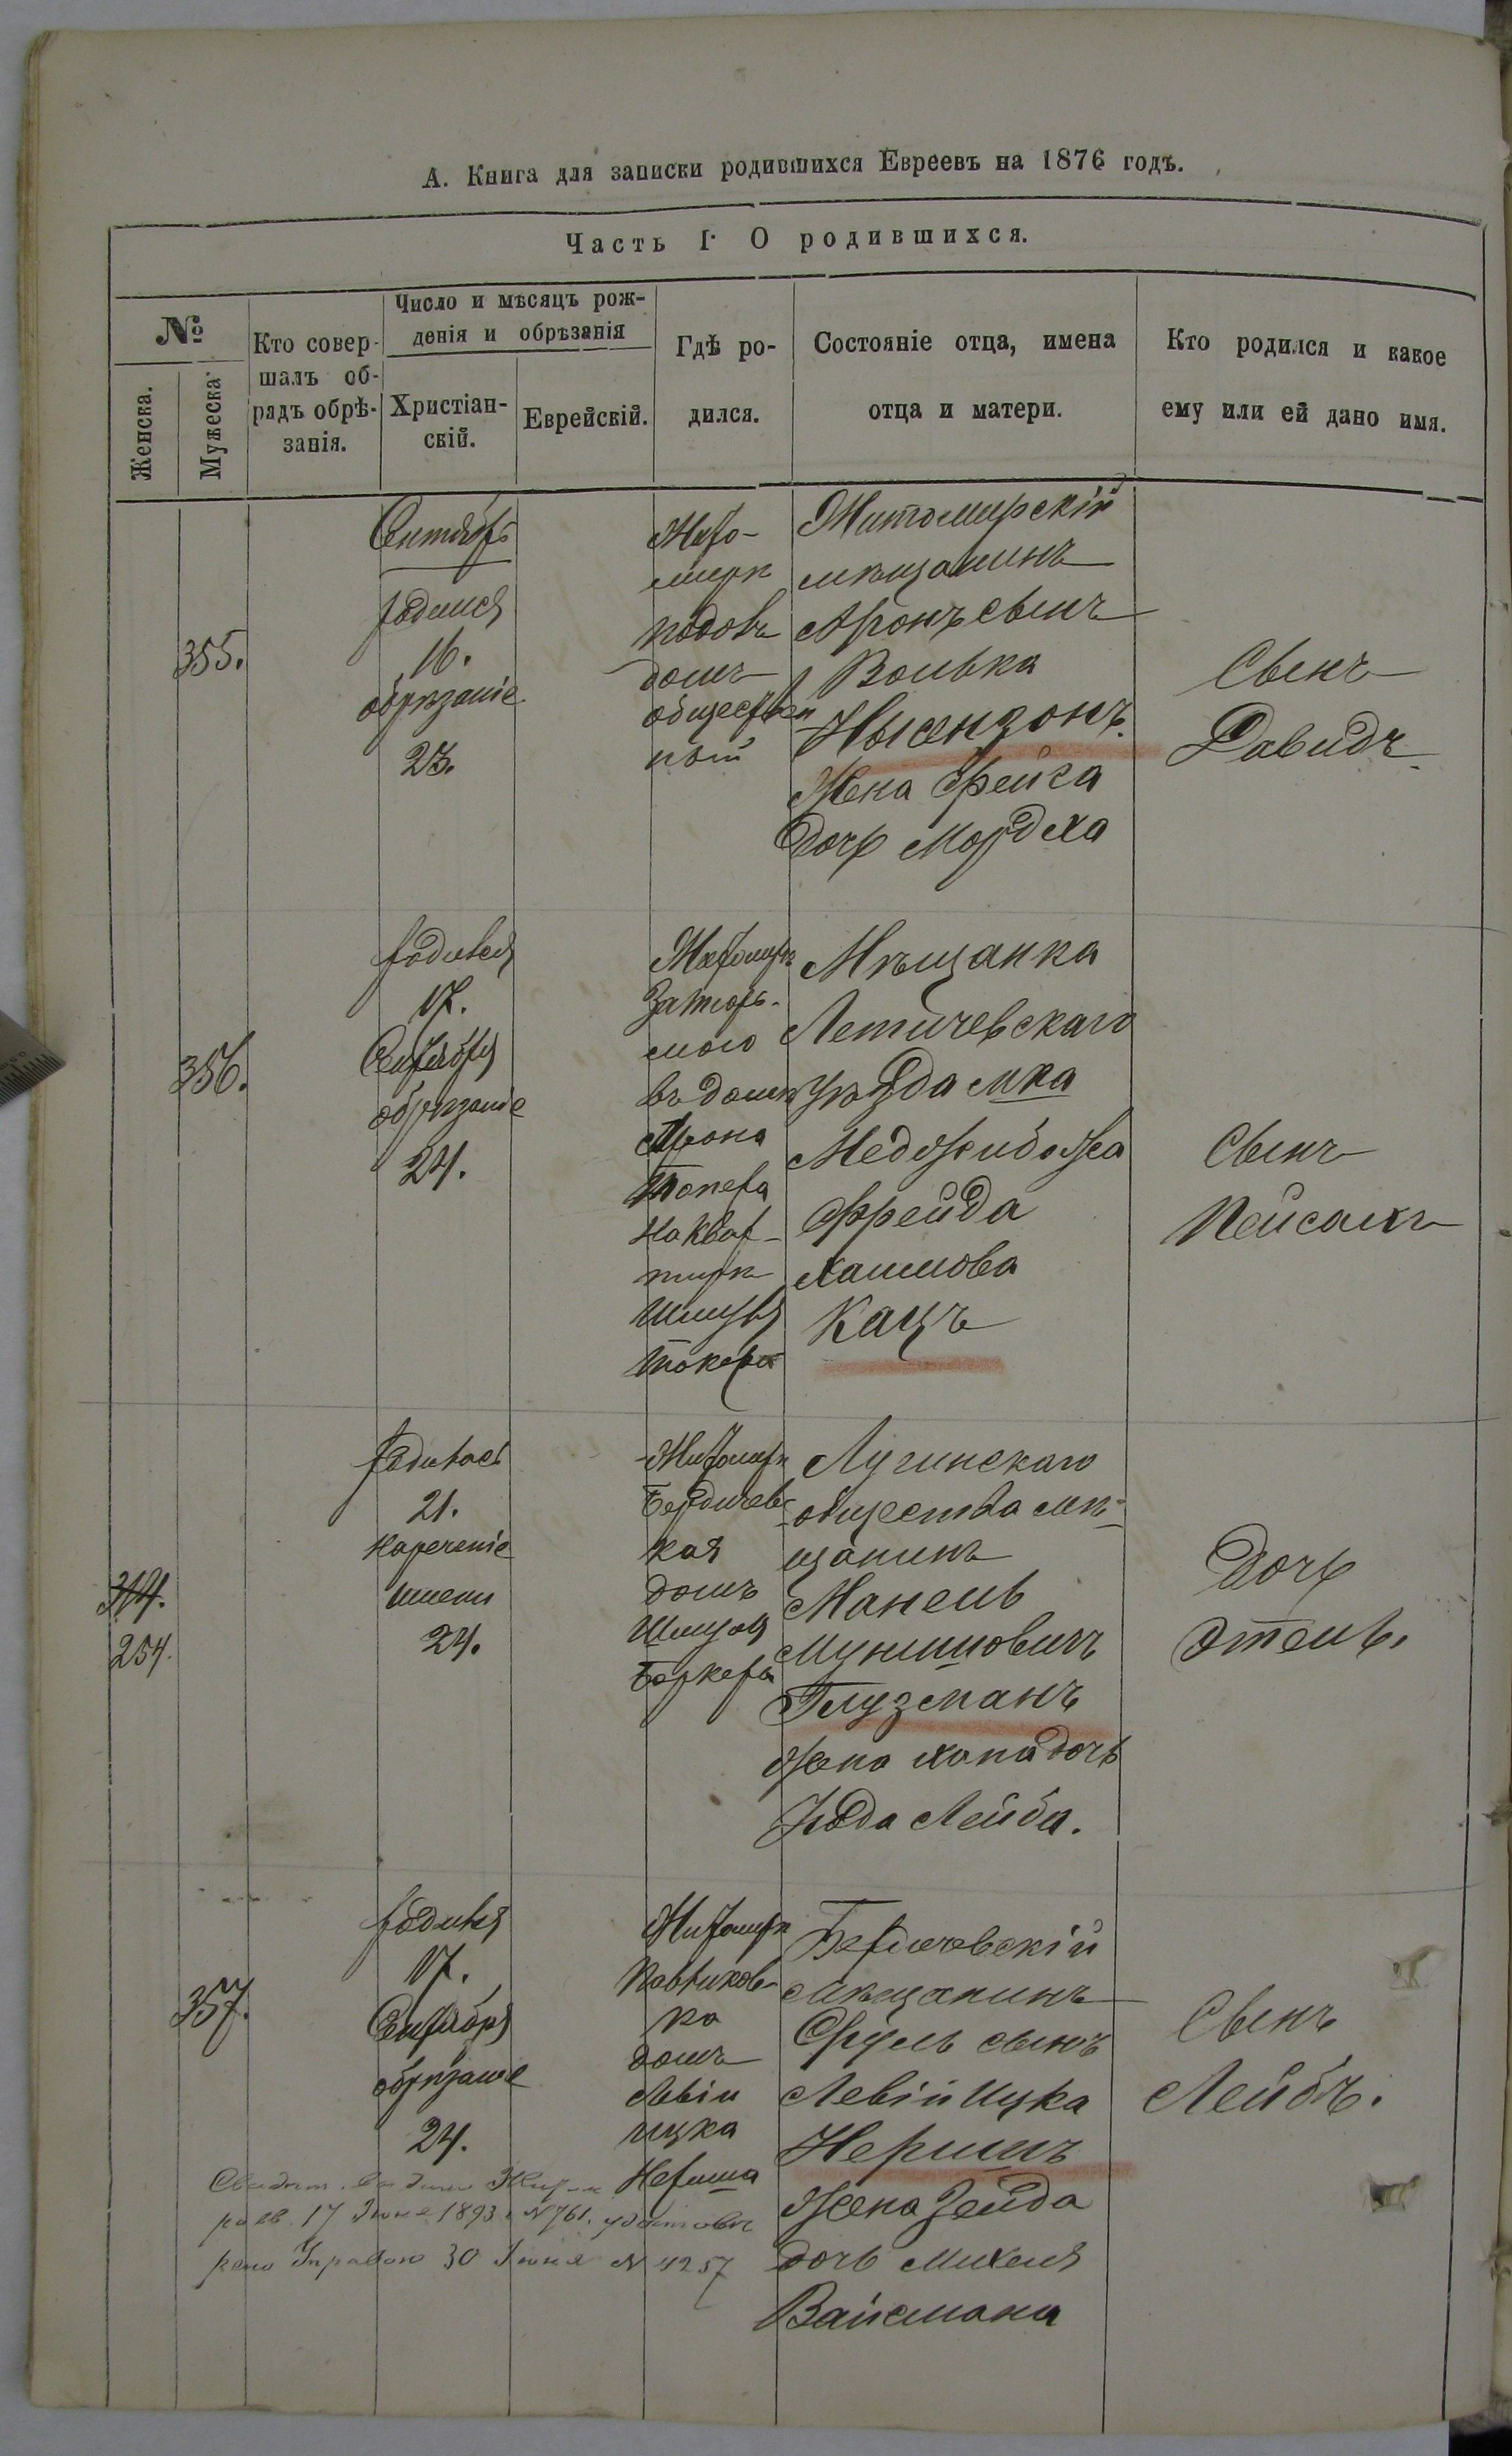 А. Книга для записки родившихся Евреевъ на 1876 годъ.
Часть I. О родившихся.
№
Женска.
Мужеска
Кто совер-
шалъ об-
рядъ обрѣ-
занія.
Число и мѣсяцъ рож-
денія и обрѣзанія
Христіан-
скій.
Еврейскій.
Гдѣ ро-
дился.
Состояніе отца, имена
отца и матери.
Кто родился и какое
ему или ей дано имя.
355.
Сентябрь
родился
16.
обрѣзаніе
23.
Жито-
миръ
домъ
обществен
ный
Житомирскій
мѣщанинъ
Аронъ сынъ
Волька
Нысензонъ.
Жена Фейга
Дочь Мордха
Сынъ
Давидъ
356.
родився
17.
Сентября
обрѣзаніе
24.
Житомиръ
въ домѣ
Арона
на квар-
тирѣ
Шмуля
Токера
Мѣщанка
Летичевскаго
уѣзда мка
Меджибожа
Фрейда
Хаимова
Кацъ
Сынъ
Пейсахъ
314.
254.
родилась
21.
нареченіе
имени
24.
Житомиръ
Бердичевс
кая
домъ
Шмуля
Боркера
Лугинскаго
общества мѣ-
щанинъ
Манель
Мунишовичъ
Глузманъ
жена Хана дочь
Юда Лейба.
Дочь
Этель.
357.
родився
17.
Сентября
обрѣзаніе
24.
Житомиръ
ка
домъ
Левіи
Ицка
Нериша
Бердичевскій
мѣщанинъ
Сруль сынъ
Левій Ицка
Неришъ
жена Зейда
дочь Михеля
Вайсмана
Сынъ
Лейбъ.
17 Іюня 1893 № 761.
Управою 30 Іюня № 4257